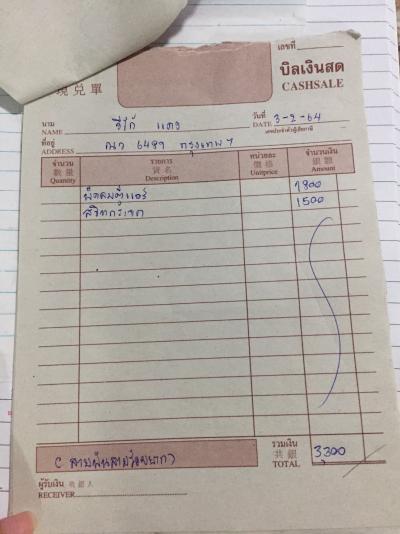 เลขที่
บิลเงินสด
現兌單 CASHSALE
นาม
NAME วีโก้ แดง
วันที่
DATE 3-2-64
เลขประจำตัวผู้เสียภาษี
ที่อยู่
ADDRESS ณว 6491 กรุงเทพฯ
จำนวน 數量 Quantity
รายการ 貨名 Description
หน่วยละ 價格 Unitprice
จำนวนเงิน 銀額 Amount
พัดลมตู้แอร์ 1800
สวิทกระจก 1500
รวมเงิน
共銀
TOTAL 3,300
(สามพันสามร้อยบาท)
ผู้รับเงิน 收銀人
RECEIVER